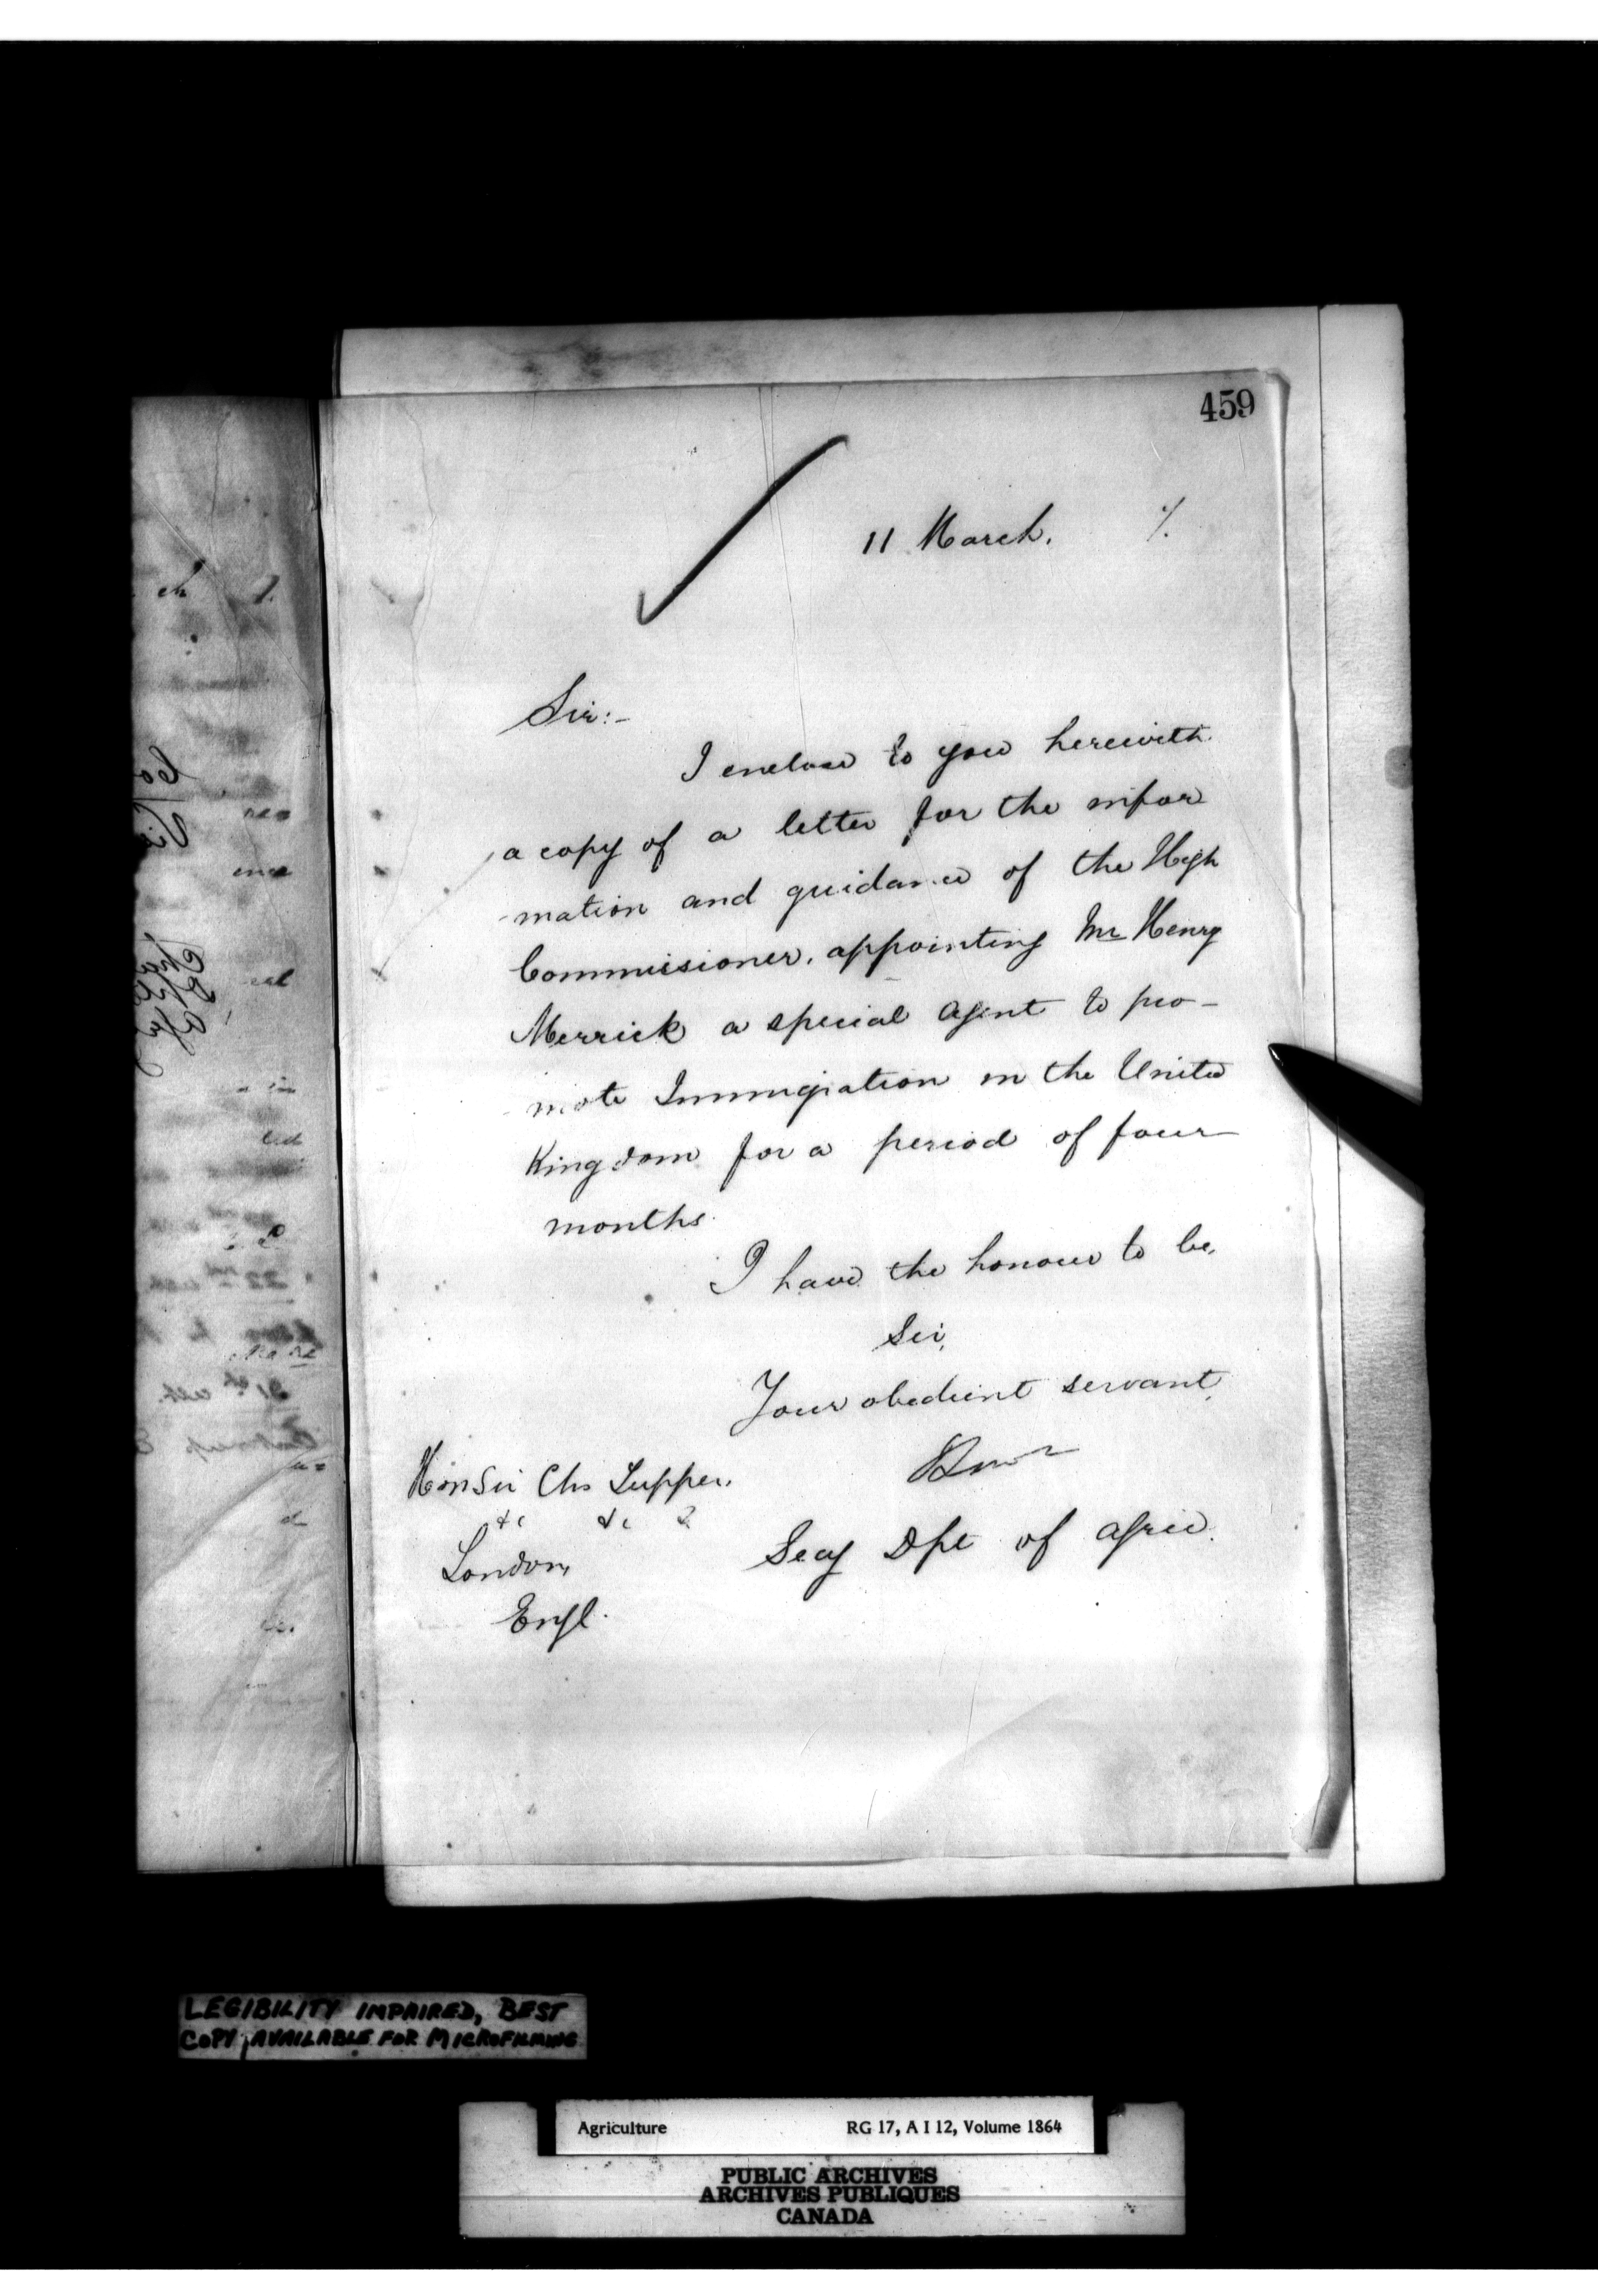 459
11 March. /.
Sir:-
I enclose to you herewith
a copy of a letter for the infor
-mation and guidance of the High
Commissioner, appointing Mr Henry
Merrick a special agent to pro-
mote Immigration in the United
Kingdom for a period of four
months.
I have the honour to be,
Sir,
Your obedient servant,
Hon Sir Chs Tupper.
&c &c &
London,
Engl.
Secy Dpt of Agric.
LEGIBILITY IMPAIRED, BEST
COPY AVAILABLE FOR MICROFILMING
Agriculture RG 17, A I 12, Volume 1864
PUBLIC ARCHIVES
ARCHIVES PUBLIQUES
CANADA